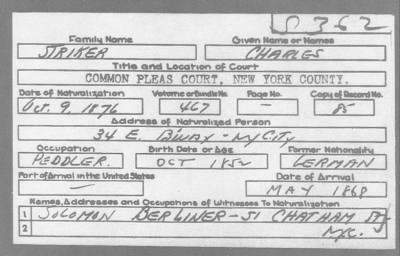 S 362
Family Name Given Name or Names
STRIKER CHARLES
Title and Location of Court
COMMON PLEAS COURT, NEW YORK COUNTY.
Date of Naturalization Volume or Bundle No. Page No. Copy of Record No.
Oct. 9, 1876 467 — 85
Address of Naturalized Person
34 E. B'WAY - NY CITY
Occupation Birth Date or Age Former Nationality
PEDDLER. OCT 1852 GERMAN
Port of Arrival in the United States Date of Arrival
— MAY 1868
Names, Addresses and Occupations of Witnesses To Naturalization
1 SOLOMON BERLINER - 51 CHATHAM ST
2 NYC.